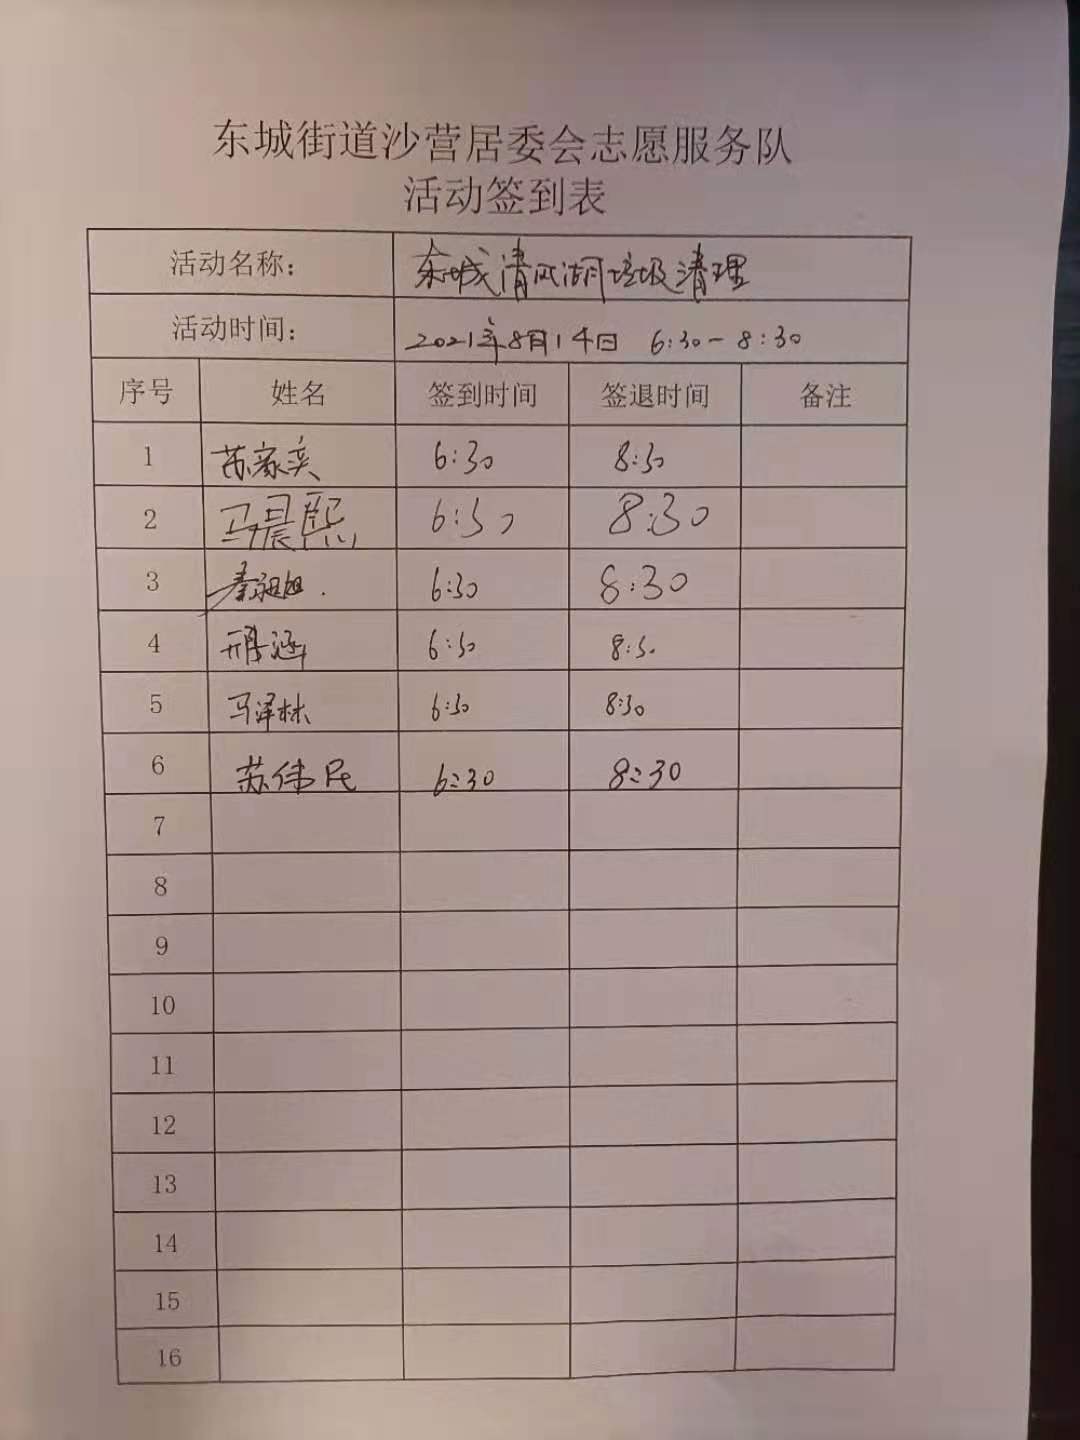 东城街道沙营居委会志愿服务队
活动签到表
活动名称： 东城清风湖垃圾清理
活动时间： 2021年8月14日 6:30－8:30
序号 姓名 签到时间 签退时间 备注
1 6:30 8:30
2 马晨熙 6:30 8:30
3 6:30 8:30
4 6:30 8:30
5 马泽林 6:30 8:30
6 苏伟民 6:30 8:30
7
8
9
10
11
12
13
14
15
16